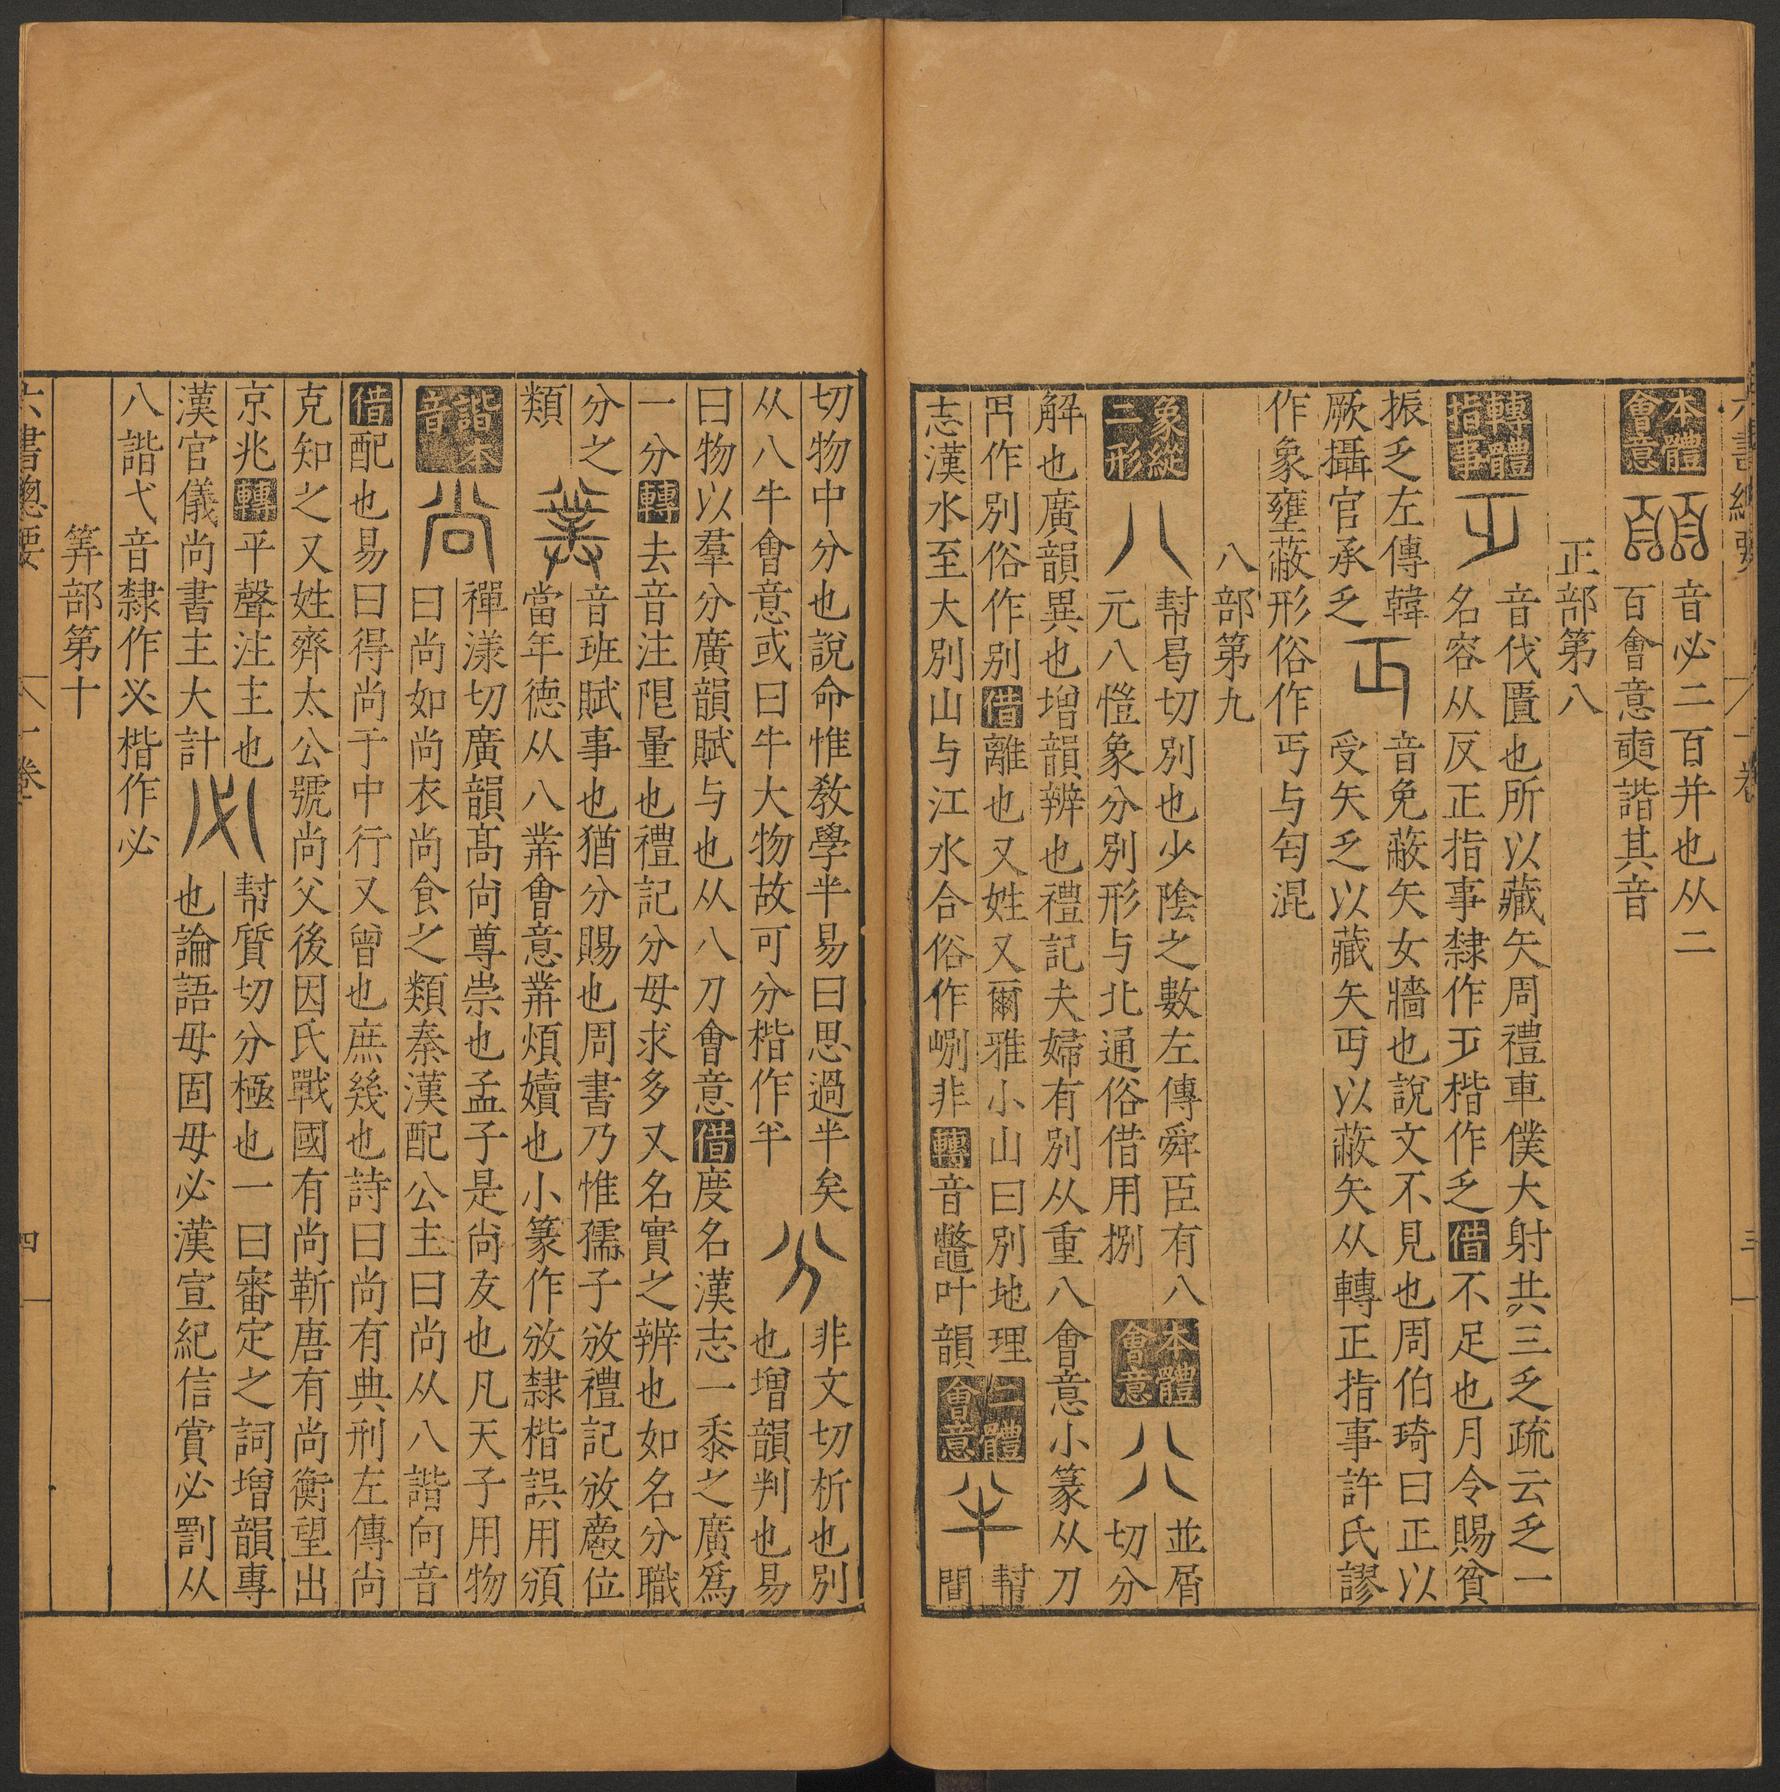 六書總要 一卷 三
本體會意
音必二百并也从二
百會意奭諧其音
正部第八
轉體指事
音伐匱也所以藏矢周禮車僕大射共三乏疏云乏一
名容从反正指事隸作𠀽楷作乏借不足也月令賜貧
振乏左傳韓
厥攝官承乏
丏
音免蔽矢女牆也說文不見也周伯琦曰正以
受矢乏以藏矢丏以蔽矢从轉正指事許氏謬
作象壅蔽形俗作丐与匄混
八部第九
象縱二形
八
幫曷切別也少陰之數左傳舜臣有八
元八愷象分別形与北通俗借用捌
本體會意
並屑
切分
解也廣韻異也增韻辨也禮記夫婦有別从重八會意小篆从刀
丹作別俗作别借離也又姓又爾雅小山曰別地理
志漢水至大別山与江水合俗作峢非轉音鼈叶韻
二體會意
半
幫
間
切物中分也說命惟敎學半易曰思過半矣
从八牛會意或曰牛大物故可分楷作半
分
非文切析也別
也增韻判也易
曰物以羣分廣韻賦与也从八刀會意借度名漢志一黍之廣爲
一分轉去音注限量也禮記分毋求多又名實之辨也如名分職
分之
類
音班賦事也猶分賜也周書乃惟孺子攽禮記攽䖏位
當年德从八菐會意菐煩嬻也小篆作攽隸楷誤用頒
諧本音
尚
禪漾切廣韻髙尚尊崇也孟子是尚友也凡天子用物
曰尚如尚衣尚食之類秦漢配公主曰尚从八諧向音
借配也易曰得尚于中行又曾也庶幾也詩曰尚有典刑左傳尚
克知之又姓齊太公號尚父後因氏戰國有尚靳唐有尚衡望出
京兆轉平聲注主也
漢官儀尚書主大計
必
幫質切分極也一曰審定之詞增韻專
也論語毋固毋必漢宣紀信賞必罰从
八諧弋音隸作𠀾楷作必
筭部第十
六書總要 一卷 四